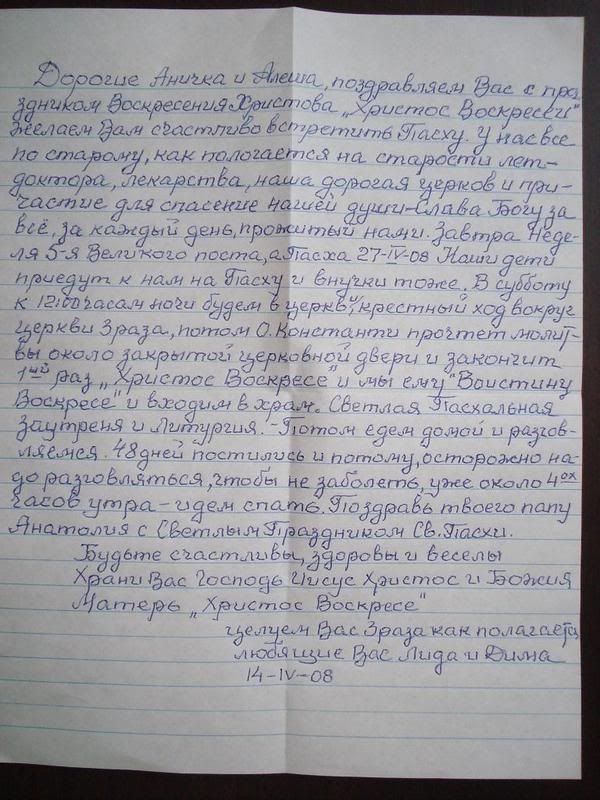 Дорогие Аничка и Алеша, поздравляем Вас с пра-
здником Воскресения Христова „Христос Воскресе"
Желаем Вам счастливо встретить Пасху. У нас все
по старому, как пологается на старости лет-
доктора, лекарства, наша дорогая церков и при-
частие для спасение нашей души-Слава Богу за
всё, за каждый день, прожитый нами. Завтра Неде-
ля 5-я Великого поста, а Пасха 27-IV-08 Наши дети
приедут к нам на Пасху и внучки тоже. В субботу
к 12:00 часам ночи будем в церкви, крестный ход вокруг
церкви 3 раза, потом О. Константи прочтет молит-
вы около закрытой церковной двери и закончит
1ый раз „Христос Воскресе" и мы ему "Воистину
Воскресе" и входим в храм. Светлая Пасхальная
Заутреня и Литургия. - Потом едем домой и разгов-
ляемся. 48 дней постились и потому, осторожно на-
до разговляться, чтобы не заболеть, уже около 4ох
часов утра - идем спать. Поздравь твоего папу
Анатолия с Светлым Праздником Св. Пасхи.
Будьте счастливы, здоровы и веселы
Храни Вас Господь Иисус Христос и Божия
Матерь „Христос Воскресе"
целуем Вас 3 раза как полагается
любящие Вас Лида и Дима
14-IV-08